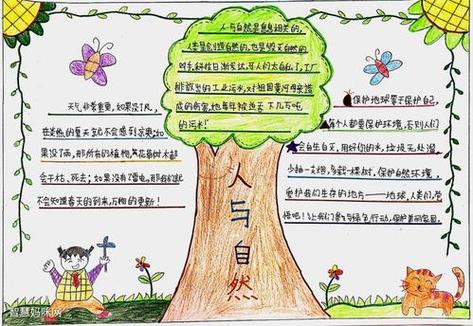 人与自然是息息相关的,
人类是创造自然的,也是毁灭自然的
凶手,科技日渐发达,可人们太自私了,工厂
排放出的工业污水,对祖国黄河带来造
成的伤害,也每年被丢下几万吨
的污水!
天气非常重要,如果没了风,
在炎热的夏天就不会感到凉爽;如
果没了雨,那所有的植物、黄花舂树木都
会干枯、死去;如果没有了雷电,那我们就
不会知道春天的到来,万物的更新!
保护地球等于保护自己,
每个人都要保护环境,否则人们
会自生自灭,用好你的水,垃圾无处溜,
少抽一支烟,多栽一棵树,保护自然环境
爱护我们生存的地方——地球,人类们,觉
悟吧!让我们参与绿色行动,保护美丽家园.
人与自然
智慧妈咪网